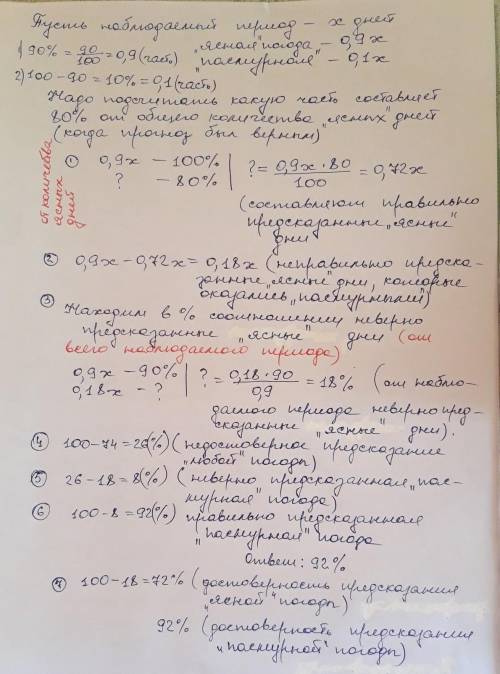 Пусть наблюдаемый период – x дней
1) 90% = 90/100 = 0,9 (часть) „ясная" погода – 0,9x
„пасмурная" – 0,1x
2) 100 – 90 = 10% = 0,1 (часть)
Надо подсчитать какую часть составляет
80% от общего количества „ясных" дней
(когда прогноз был верным)
от количества
ясных
дней
① 0,9x – 100% | ? = 0,9x · 80 / 100 = 0,72x
? – 80%
(составляют правильно
предсказанные „ясные"
дни
② 0,9x – 0,72x = 0,18x (неправильно предска-
занные „ясные" дни, которые
оказались „пасмурными")
③ Находим в % соотношении неверно
предсказанные „ясные" дни (от
всего наблюдаемого периода)
0,9x – 90% | ? = 0,18 · 90 / 0,9 = 18% (от наблю-
0,18x – ?
даемого периода неверно пред-
сказанные „ясные" дни).
④ 100 – 74 = 26(%) (недостоверное предсказание
„любой" погоды)
⑤ 26 – 18 = 8(%) (неверно предсказанная „пас-
мурная" погода)
⑥ 100 – 8 = 92(%) правильно предсказанная
„пасмурная" погода
Ответ: 92%
⑦ 100 – 18 = 72% (достоверность предсказания
„ясной" погоды)
92% (достоверность предсказания
„пасмурной" погоды)